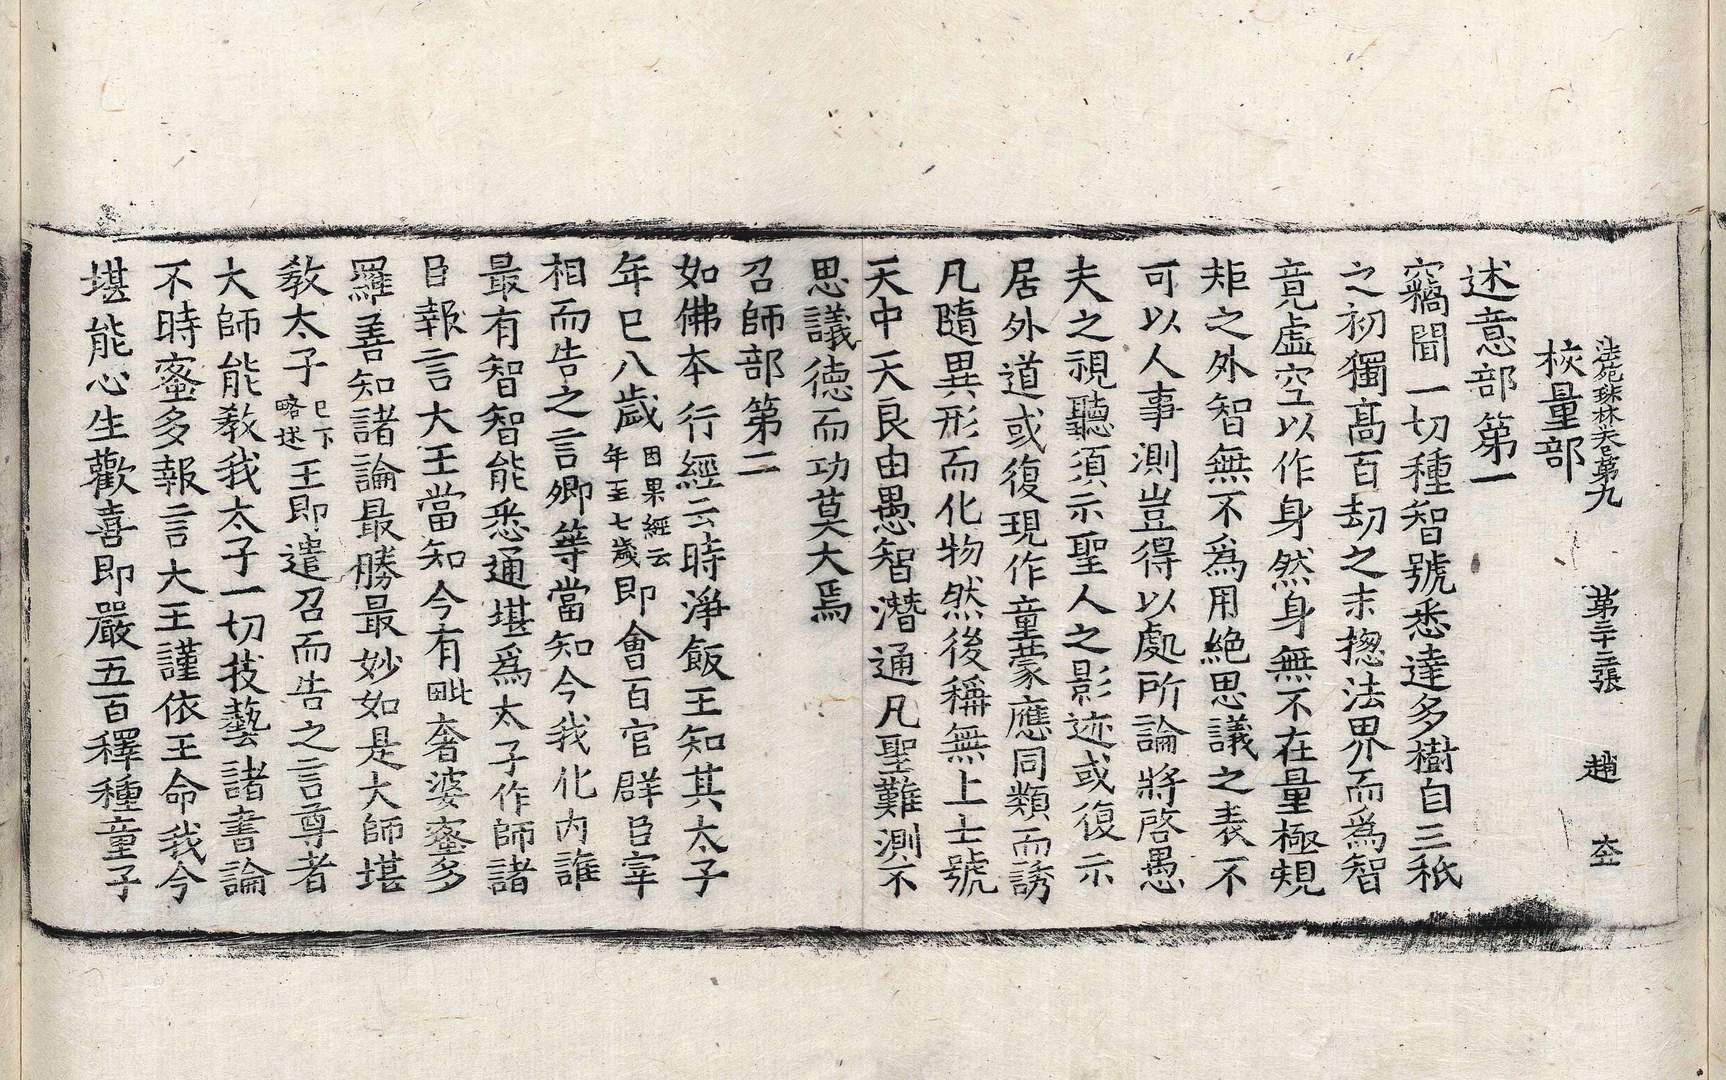 法苑珠林卷第九　第二十二張　趙　杢
校量部
述意部第一
竊聞一切種智號悉達多樹自三秖
之初獨高百劫之末揔法界而為智
竟虛空以作身然身無不在量極規
矩之外智無不為用絶思議之表不
可以人事測豈得以處所論將啓愚
夫之視聽須示聖人之影迹或復示
居外道或復現作童蒙應同類而誘
凡隨異形而化物然後稱無上士號
天中天良由愚智潛通凡聖難測不
思議德而功莫大焉
召師部第二
如佛本行經云時淨飯王知其太子
年已八歲因果經云年至七歲即會百官群臣宰
相而告之言卿等當知今我化内誰
最有智智能悉通堪爲太子作師諸
臣報言大王當知今有毗奢婆蜜多
羅善知諸論最勝最妙如是大師堪
教太子已下略述王即遣召而告之言尊者
大師能教我太子一切技藝諸書論
不時蜜多報言大王謹依王命我今
堪能心生歡喜即嚴五百釋種童子